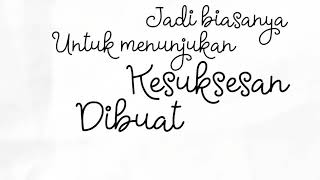 Jadi biasanya
Untuk menunjukan
Kesuksesan
Dibuat